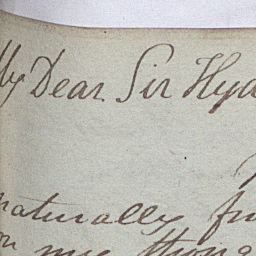 My Dear Sir Hyd
naturally fu
on my thong